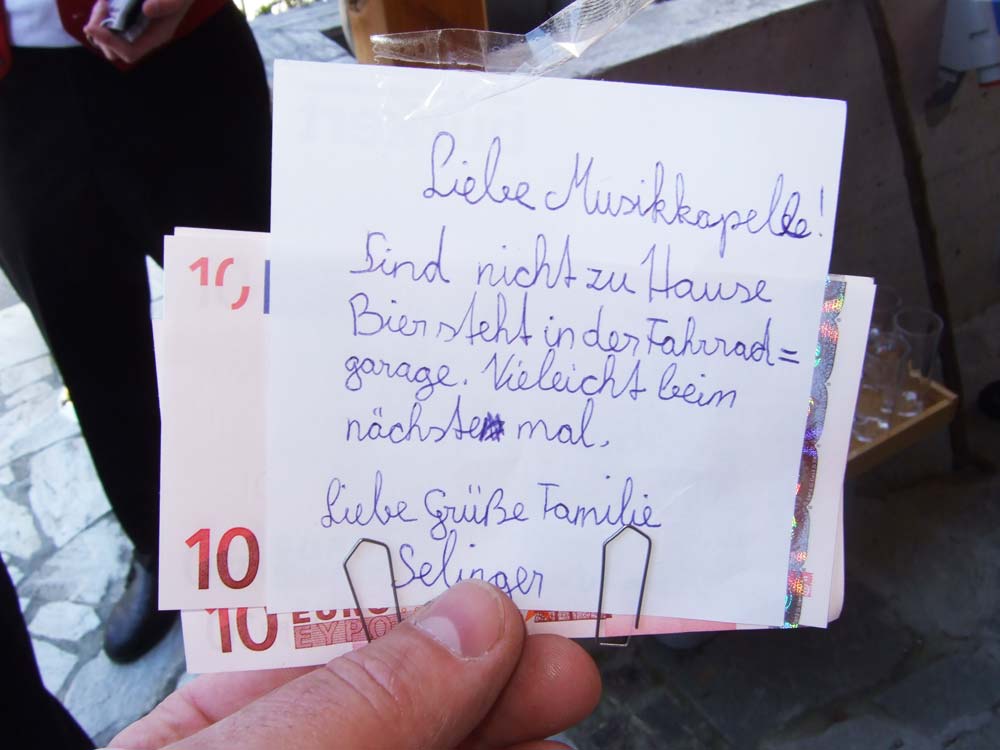 Liebe Musikkapelle!
Sind nicht zu Hause
Bier steht in der Fahrrad=
garage. Vieleicht beim
nächste mal.
Liebe Grüße Familie
Selinger
10
10
10 EURO
ΕΥΡΩ